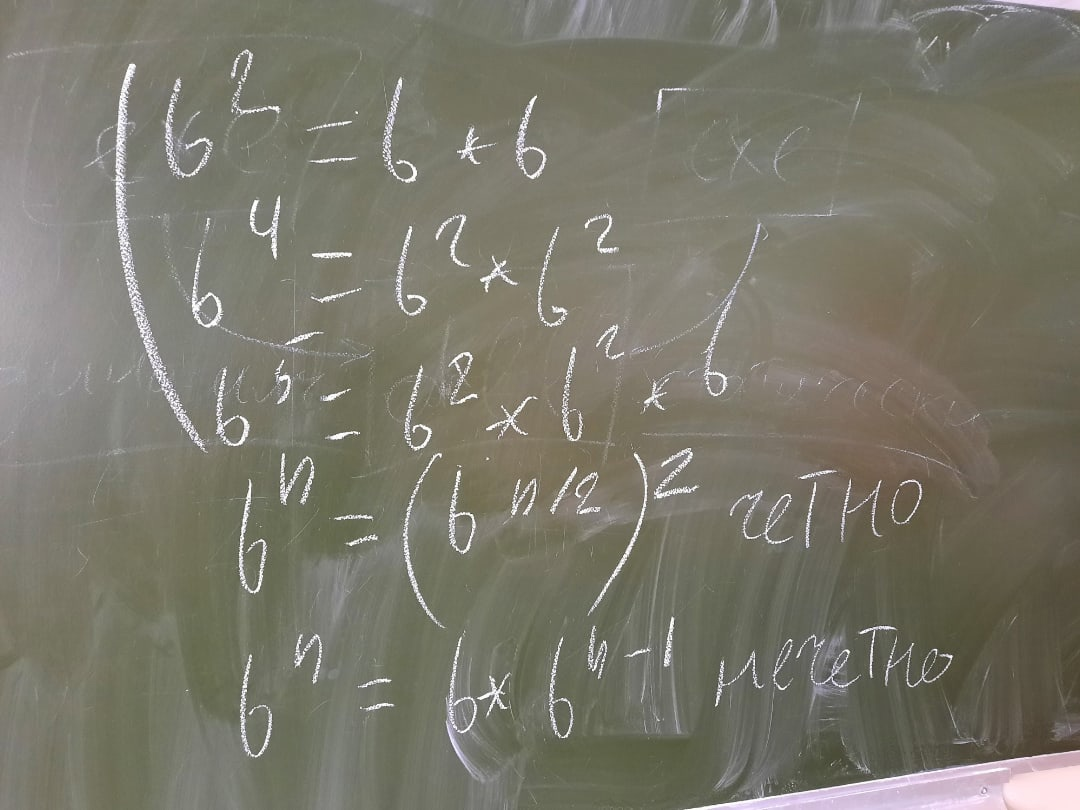 b² = b * b
b⁴ = b² * b²
b⁵ = b² * b² * b
bⁿ = (b^n/2)² четно
bⁿ = b * bⁿ⁻¹ нечетно